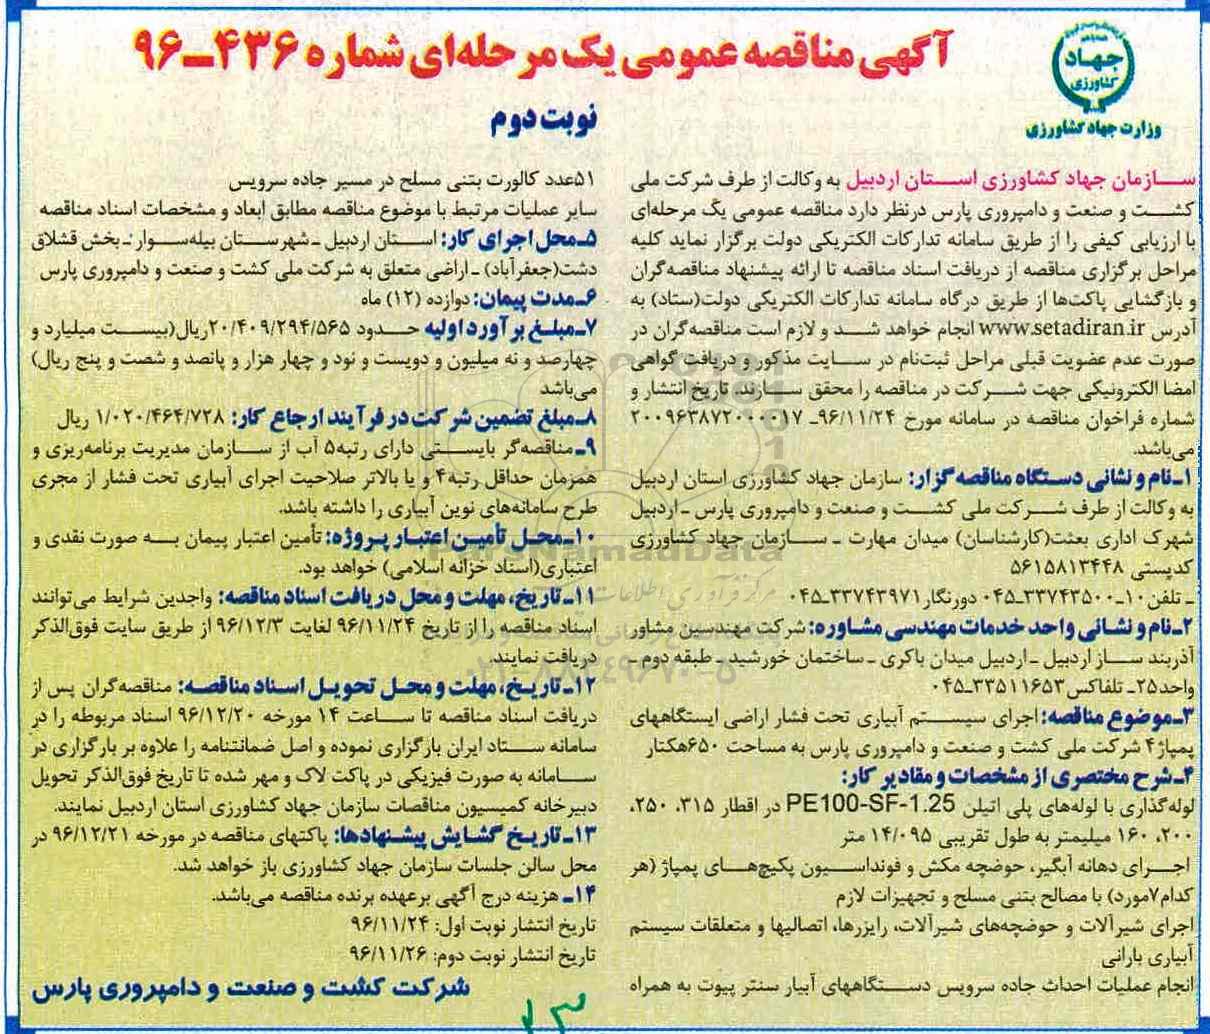 آگهی مناقصه عمومی یک مرحله‌ای شماره ۴۳۶ـ۹۶
نوبت دوم
جهاد
کشاورزی
وزارت جهاد کشاورزی
سـازمان جهاد کشاورزی اسـتان اردبیل به وکالت از طرف شرکت ملی
کشـت و صنعت و دامپروری پارس درنظر دارد مناقصه عمومی یک مرحله‌ای
با ارزیابی کیفی را از طریق سامانه تدارکات الکتریکی دولت برگزار نماید کلیه
مراحل برگزاری مناقصه از دریافت اسناد مناقصه تا ارائه پیشنهاد مناقصه‌گران
و بازگشایی پاکت‌ها از طریق درگاه سامانه تدارکات الکتریکی دولت(ستاد) به
آدرس www.setadiran.ir انجام خواهد شـد و لازم است مناقصه‌گران در
صورت عدم عضویت قبلی مراحل ثبت‌نام در سـایت مذکور و دریافت گواهی
امضا الکترونیکی جهت شـرکت در مناقصه را محقق سـازند. تاریخ انتشار و
شماره فراخوان مناقصه در سامانه مورخ ۹۶/۱۱/۲۴ـ ۲۰۰۹۶۳۸۷۲۰۰۰۰۱۷
می‌باشد.
۱ـنام و نشانی دستگاه مناقصه گزار: سازمان جهاد کشاورزی استان اردبیل
به وکالت از طرف شـرکت ملی کشـت و صنعت و دامپروری پارس ـ اردبیل
شهرک اداری بعثت(کارشناسان) میدان مهارت ـ سـازمان جهاد کشاورزی
کدپستی ۵۶۱۵۸۱۳۴۴۸
ـ تلفن۱۰ـ۳۳۷۴۳۵۰۰ـ۰۴۵ دورنگار۳۳۷۴۳۹۷۱ـ۰۴۵
۲ـنام و نشـانی واحد خدمات مهندسی مشاوره: شرکت مهندسین مشاور
آذربند سـاز اردبیل ـ اردبیل میدان باکری ـ ساختمان خورشید ـ طبقه دوم ـ
واحد۲۵ـ تلفاکس۳۳۵۱۱۶۵۳ـ۰۴۵
۳ـموضوع مناقصه: اجرای سیسـتم آبیاری تحت فشار اراضی ایستگاههای
پمپاژ۴ شرکت ملی کشت و صنعت و دامپروری پارس به مساحت ۶۵۰هکتار
۴ـشرح مختصری از مشخصات و مقادیر کار:
لوله‌گذاری با لوله‌های پلی اتیلن PE100-SF-1.25 در اقطار ۳۱۵، ۲۵۰،
۲۰۰، ۱۶۰ میلیمتر به طول تقریبی ۱۴/۰۹۵ متر
اجـرای دهانه آبگیر، حوضچه مکش و فونداسـیون پکیچ‌هـای پمپاژ (هر
کدام۷مورد) با مصالح بتنی مسلح و تجهیزات لازم
اجرای شیرآلات و حوضچه‌های شیرآلات، رایزرها، اتصالیها و متعلقات سیستم
آبیاری بارانی
انجام عملیات احداث جاده سرویس دسـتگاههای آبیار سنتر پیوت به همراه
۵۱عدد کالورت بتنی مسلح در مسیر جاده سرویس
سایر عملیات مرتبط با موضوع مناقصه مطابق ابعاد و مشخصات اسناد مناقصه
۵ـمحل اجرای کار: اسـتان اردبیل ـ شهرسـتان بیله‌سـوار ـ بخش قشلاق
دشت(جعفرآباد) ـ اراضی متعلق به شرکت ملی کشت و صنعت و دامپروری پارس
۶ـمدت پیمان: دوازده (۱۲) ماه
۷ـمبلـغ برآورد اولیه حـدود ۲۰/۴۰۹/۲۹۴/۵۶۵ریال(بیسـت میلیارد و
چهارصد و نه میلیون و دویست و نود و چهار هزار و پانصد و شصت و پنج ریال)
می‌باشد
۸ـمبلغ تضمین شرکت در فرآیند ارجاع کار: ۱/۰۲۰/۴۶۴/۷۲۸ ریال
۹ـمناقصه‌گر بایسـتی دارای رتبه۵ آب از سـازمان مدیریت برنامه‌ریزی و
همزمان حداقل رتبه۴ و یا بالاتر صلاحیت اجرای آبیاری تحت فشار از مجری
طرح سامانه‌های نوین آبیاری را داشته باشد.
۱۰ـمحـل تأمیـن اعتبـار پـروژه: تأمین اعتبار پیمان بـه صورت نقدی و
اعتباری(اسناد خزانه اسلامی) خواهد بود.
۱۱ـتاریخ، مهلت و محل دریافت اسناد مناقصه: واجدین شرایط می‌توانند
اسناد مناقصه را از تاریخ ۹۶/۱۱/۲۴ لغایت ۹۶/۱۲/۳ از طریق سایت فوق‌الذکر
دریافت نمایند.
۱۲ـتاریـخ، مهلت و محـل تحویـل اسـناد مناقصـه: مناقصه‌گران پس از
دریافت اسناد مناقصه تا سـاعت ۱۴ مورخه ۹۶/۱۲/۲۰ اسناد مربوطه را در
سامانه سـتاد ایران بارگزاری نموده و اصل ضمانتنامه را علاوه بر بارگزاری در
سـامانه به صورت فیزیکی در پاکت لاک و مهر شده تا تاریخ فوق‌الذکر تحویل
دبیرخانه کمیسیون مناقصات سازمان جهاد کشاورزی استان اردبیل نمایند.
۱۳ـتاریـخ گشـایش پیشـنهادها: پاکتهای مناقصه در مورخه ۹۶/۱۲/۲۱ در
محل سالن جلسات سازمان جهاد کشاورزی باز خواهد شد.
۱۴ـ هزینه درج آگهی برعهده برنده مناقصه می‌باشد.
تاریخ انتشار نوبت اول: ۹۶/۱۱/۲۴
تاریخ انتشار نوبت دوم: ۹۶/۱۱/۲۶
شرکت کشت و صنعت و دامپروری پارس
ParsNamadData
۰۲۱-۸۸۳۴۹۶۷۰-۵